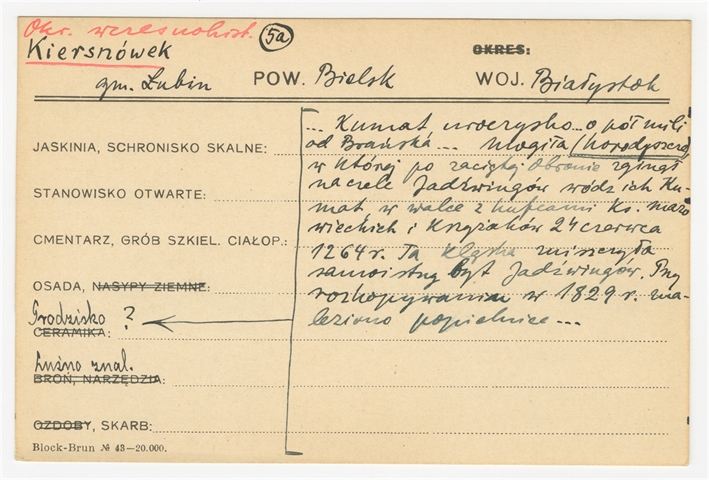 Okr. wczesnohist. 5a
Kiersnówek OKRES:
gm. Łubin POW. Bielsk WOJ. Białystok
JASKINIA, SCHRONISKO SKALNE:
STANOWISKO OTWARTE:
CMENTARZ, GRÓB SZKIEL. CIAŁOP.:
OSADA, NASYPY ZIEMNE:
Grodzisko ?
CERAMIKA:
Luźno znal.
BROŃ, NARZĘDZIA:
OZDOBY, SKARB:
Block-Brun № 43–20.000.
... Kumat uroczysko.. o pół mili
od Brańska... mogiła (horodyszcze)
w której po zaciętej obronie zginął
na czele Jadźwingów wódz ich Ku-
mat, w walce z hufcami Ks. mazo
wieckich i Krzyżaków 24 czerwca
1264 r. Ta klęska zniszczyła
samoistny byt Jadźwingów. Przy
rozkopywaniu w 1829 r. zna-
leziono popielnice...